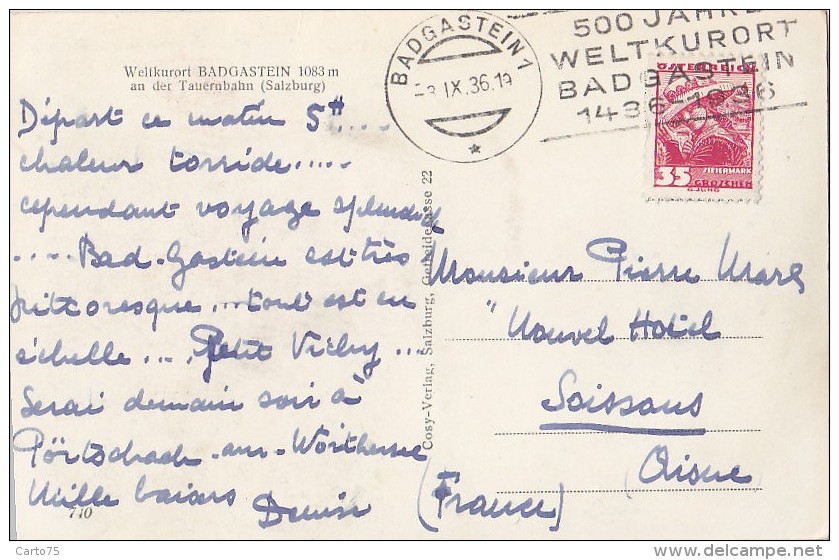 Weltkurort BADGASTEIN 1083 m
an der Tauernbahn (Salzburg)
Départ ce matin 5H....
chaleur torride.....
cependant voyage splendide
..... Bad-Gastein est très
pittoresque ... tout est en
échelle ... Petit Vichy ...
Serai demain soir à
Pörtschach-am-Wörthersee
Mille baisers Denise
710
Cosy-Verlag, Salzburg, Getreidegasse 22
BADGASTEIN 1
IX.36.19
500 JAHRE
WELTKURORT
BADGASTEIN
1436-1936
ÖSTERREICH
STEIERMARK
35 GROSCHEN
G.JUNG
Monsieur Pierre
"Nouvel Hotel
Soissons
Aisne
(France)
Carto75
www.delcampe.net